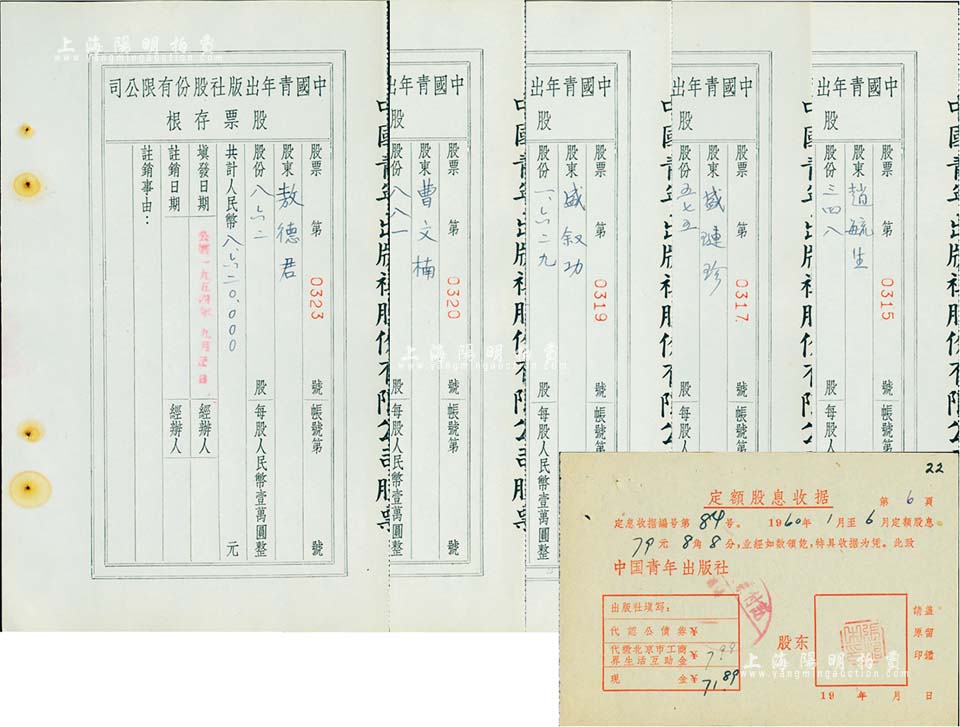 上海陽明拍賣
www.yangmingauction.com
中國青年出版社股份有限公司
股票存根
股票 第 0323 號 帳號第 號
股東 敖德君
股份 八六二 股 每股人民幣壹萬圓整
共計人民幣 八、六二0、000 元
填發日期 公曆一九五四年九月 日 經辦人
註銷日期 經辦人
註銷事由：
中國青年出版社股份有限公司股票
中國青年出
股
股票 第 0320 號 帳號第
股東 曹文楠
股份 八八一 股 每股人民幣壹萬圓整
中國青年出版社股份有限公司股票
中國青年出
股
股票 第 0319 號 帳號第
股東 盛敘功
股份 一、六二九 股 每股人民幣壹萬圓整
中國青年出版社股份有限公
中國青年出
股
股票 第 0317 號 帳號第
股東 盛璉珍
股份 五七五 股 每股人民幣壹萬圓整
中國青年出版社股份有限公
中國青年出
股
股票 第 0315 號 帳號第
股東 趙毓生
股份 三四八 股 每股人民幣壹萬圓整
中國青年出版社股份有限公
22
定額股息收据
第 6 頁
定息收据編号第 84 号。 1960年 1月至 6月定額股息
79元 8角 8分，並經如数領訖，特具收据为凭。此致
中国青年出版社
出版社填写：
代認公債券¥
代繳北京市工商界生活互助金¥ 7.99
現 金¥ 71.89
股东
請盖原留印鑑
19 年 月 日
上海陽明拍賣
www.yangmingauction.com
上海陽明拍賣
www.yangmingauction.com